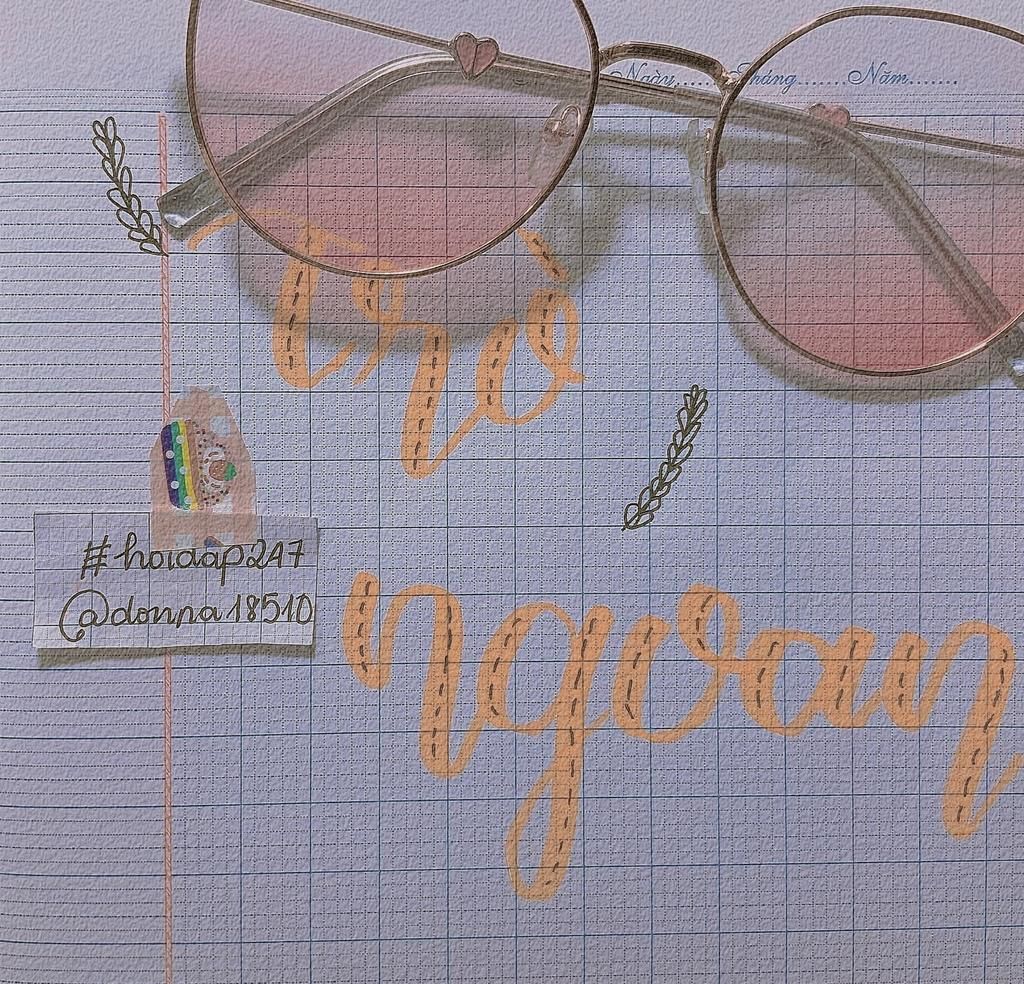 Ngày.......Tháng.......Năm.......
Trò
#hoidap247
@donna18510
ngoan